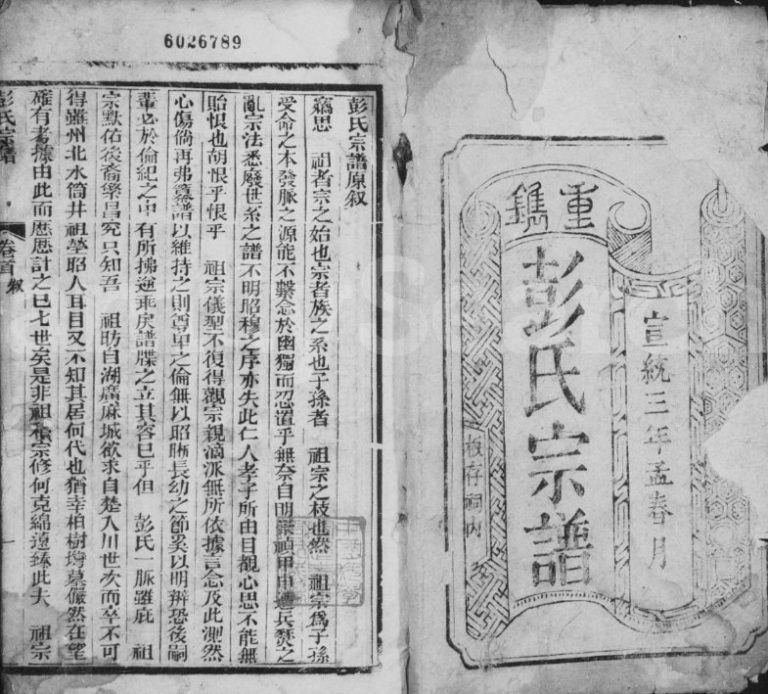 6026789
重鐫
宣統三年孟春月
彭氏宗譜
板存祠內
彭氏宗譜原叙
竊思 祖者宗之始也宗者族之系也子孫者 祖宗之枝也然 祖宗爲子孫
受命之本發脈之源能不繫念於幽獨而忍置乎無奈自明崇禎甲申遭兵燹之
亂宗法悉廢世系之譜不明昭穆之序亦失此仁人孝子所由目覩心思不能無
貽恨也胡恨乎恨乎 祖宗儀型不復得觀宗親滴派無所依據言念及此測然
心傷倘再弗纂譜以維持之則尊卑之倫無以昭晰長幼之節奚以明辯恐後嗣
輩必於倫紀之中有所拂逆乖戾譜牒之立其容已乎但 彭氏一脈雖庇 祖
宗默佑後裔繁昌究只知吾 祖昉自湖廣麻城欲求自楚入川世次而卒不可
得雖州北水筒井祖塋昭人耳目又不知其居何代也猶幸柏樹塆墓儼然在望
確有考據由此而歷歷計之已七世矣是非祖積宗修何克綿遠臻此夫 祖宗
彭氏宗譜
卷首
叙